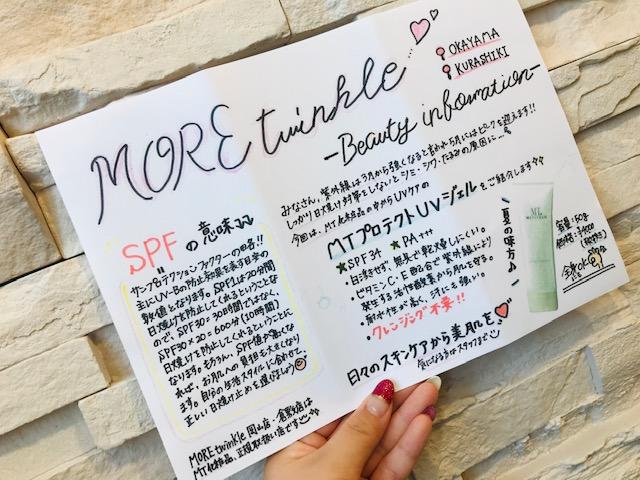 MORE twinkle
OKAYAMA
KURASHIKI
-Beauty information-
みなさん、紫外線は3月から強くなると言われ5月にはピークを迎えます!!
しっかり日焼け対策をしないとシミ・シワ・たるみの原因に…
今回は、MT化粧品の中からUVケアの
MTプロテクトUVジェルをご紹介します
★SPF34 ★PA+++
・白浮きせず、無臭で乾燥しにくい。
・ビタミンC・E配合で紫外線により
発生する活性酸素から肌を守る。
・耐水性が高く、汗にも強い。
クレンジング不要!!
夏の味方♪
容量:50g
全身OK
日々のスキンケアから美肌を
気になる方はスタッフまで
SPFの意味
サンプロテクションファクターの略!!
主にUV-Bの防止効果を表す目安の
数値となります。SPF1は20分間
日焼けを防止してくれるということな
ので、SPF30=30時間ではなく、
SPF30×20=600分(10時間)
日焼けを防止してくれるということに
なります。もちろん、SPF値が高くな
れば、お肌への負担も大きくなり
ます。自分の生活スタイルに合わせて、
正しい日焼け止めを選びましょう
MORE twinkle 岡山店・倉敷店は
MT化粧品、正規取扱い店です